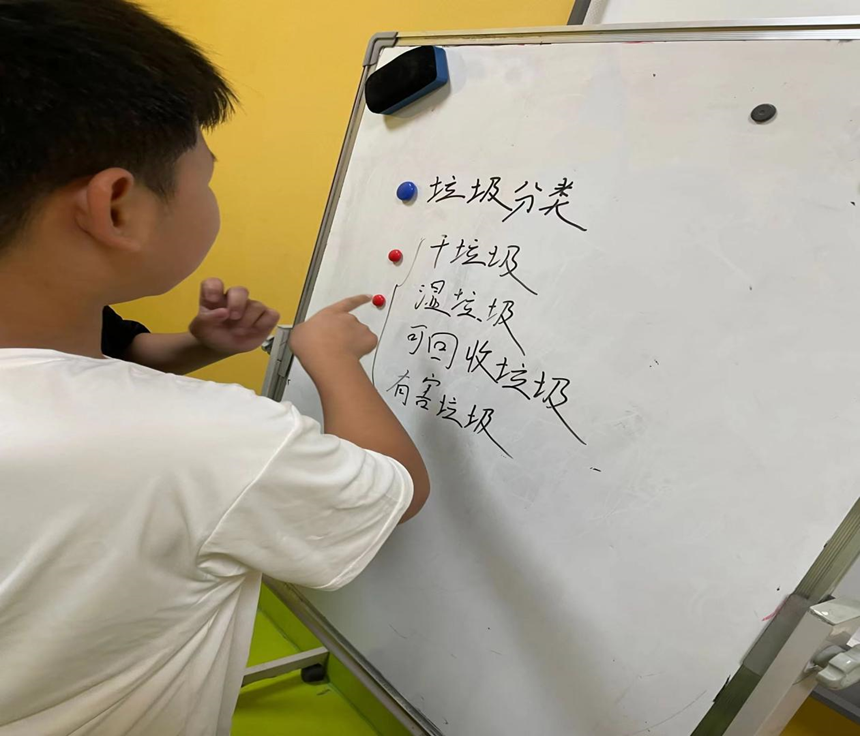 垃圾分类
干垃圾
湿垃圾
可回收垃圾
有害垃圾